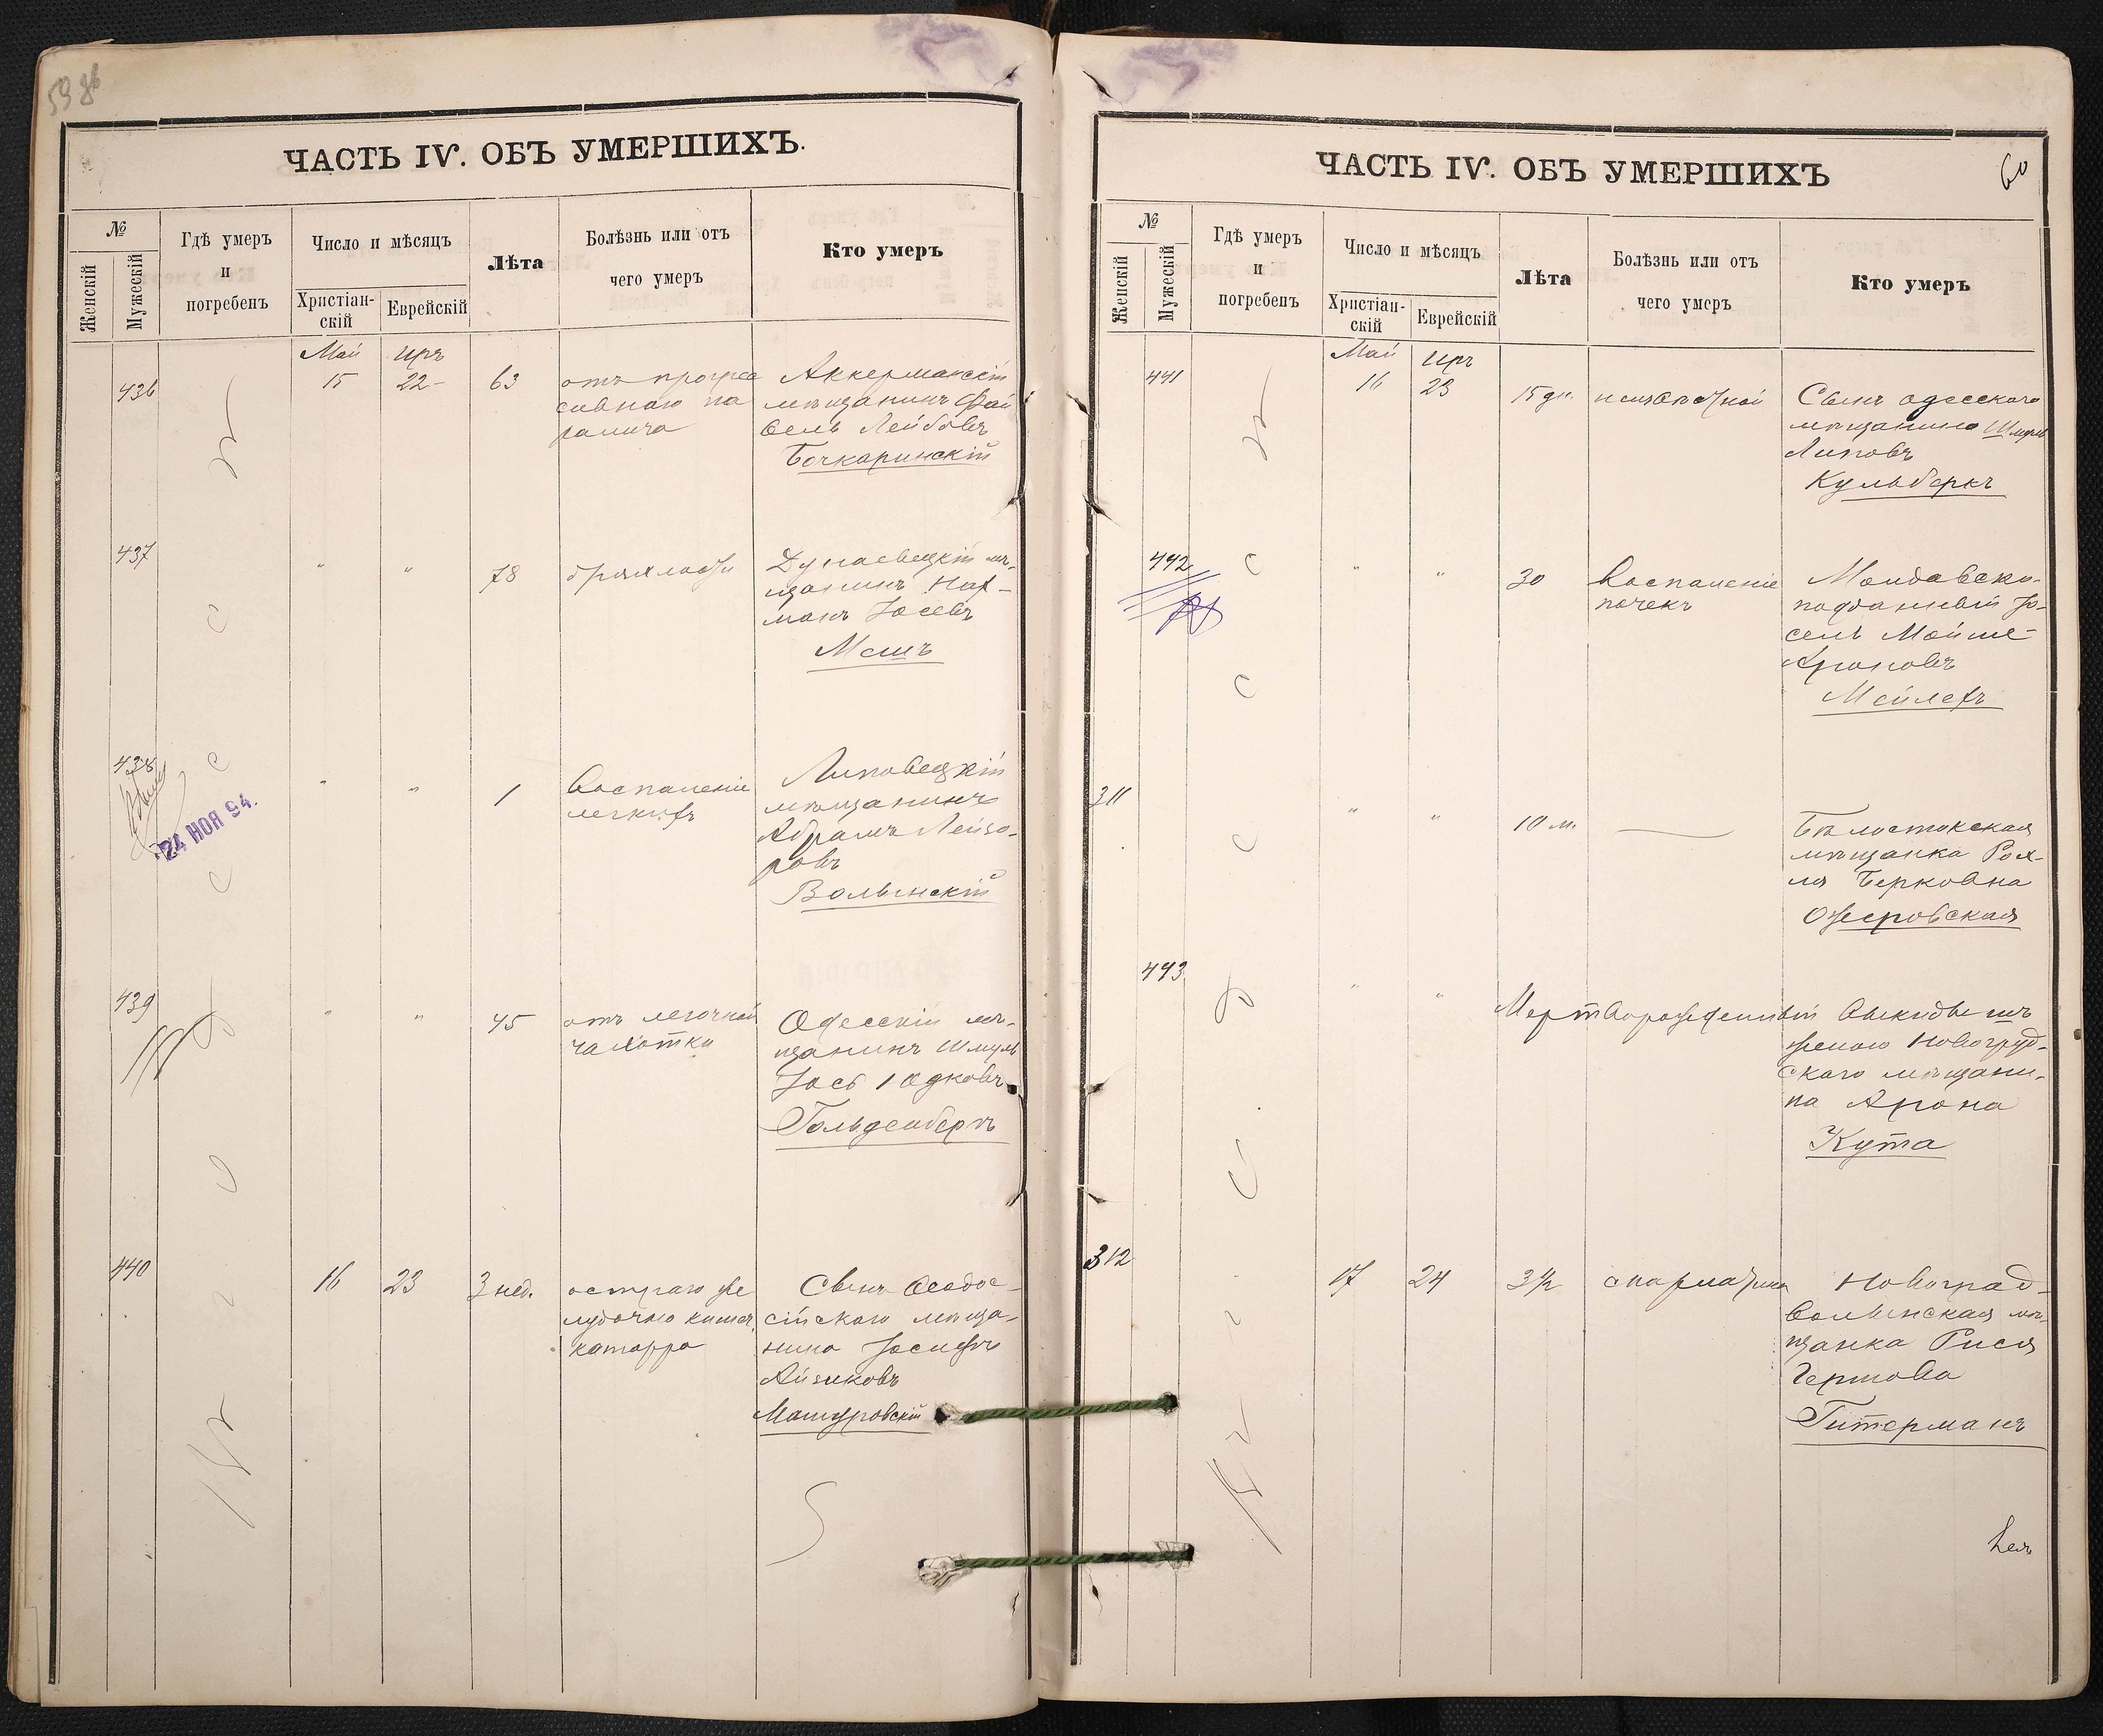 59 об
ЧАСТЬ IV. ОБЪ УМЕРШИХЪ.
№
Женскій
Мужескій
Гдѣ умеръ
и
погребенъ
Число и мѣсяцъ
Христіан-
скій
Еврейскій
Лѣта
Болѣзнь или отъ
чего умеръ
Кто умеръ
Май
Иръ
436
15
22
63
отъ прогрес
сивнаго па
ралича
Аккерманскій
мѣщанинъ Фай
вель Лейбовъ
Бочкаринскій
437
"
"
78
дряхлости
Дунаевецкій мѣ-
щанинъ Нах-
манъ Іосевъ
Мешъ
438
24 НОЯ 94.
"
"
1
Воспаленіе
легкихъ
Липовецкій
мѣщанинъ
Абрамъ Лейзо-
ровъ
Волынскій
439
"
"
45
отъ легочной
чахотки
Одесскій мѣ-
щанинъ Шмуль
Іось
Гольденбергъ
440
16
23
3 нед.
остраго же
лудочно кишеч.
катарра
Сынъ Ѳеодос-
сійскаго мѣща-
нина Іосифъ
Айзиковъ
Одесса
ЧАСТЬ IV. ОБЪ УМЕРШИХЪ
60
№
Женскій
Мужескій
Гдѣ умеръ
и
погребенъ
Число и мѣсяцъ
Христіан-
скій
Еврейскій
Лѣта
Болѣзнь или отъ
чего умеръ
Кто умеръ
Май
Иръ
441
16
23
15 дн.
Сынъ одесскаго
мѣщанина Шмуль
Липовъ
Кульберкъ
442
"
"
30
Воспаленіе
почекъ
Молдавско-
подданный Іо-
сель Мойше-
Ароновъ
Мейлехъ
311
"
"
10 м.
Бѣлостокская
мѣщанка Рох-
ля Берковна
Ожеровская
443
"
"
Мертворожденный выкидышъ
женою Новогруд-
скаго мѣщани-
на Арона
Кута
312
17
24
3½
скарлатина
Новоград-
волынская мѣ-
щанка Рися
Гершова
Гитерманъ